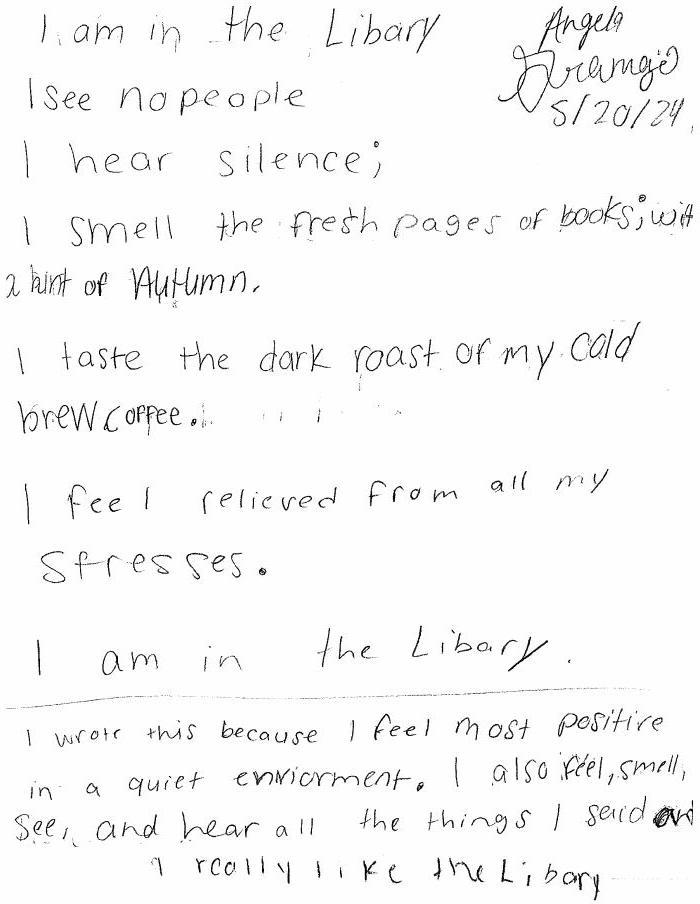 I am in the Libary
Angela
5/20/24
I see no people
I hear silence;
I smell the fresh pages of books; with
a hint of Autumn.
I taste the dark roast of my cold
brew coffee.
I feel relieved from all my
stresses.
I am in the Libary.
I wrote this because I feel most positive
in a quiet enviorment. I also feel, smell,
see, and hear all the things I said and
I really like the Libary